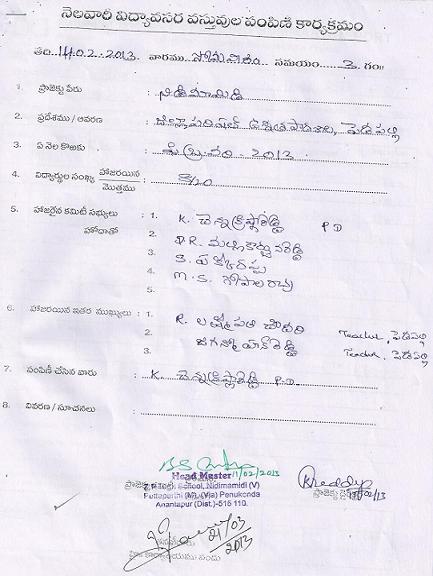 నెలవారి విద్యావసర వస్తువుల పంపిణి కార్యక్రమం
తేది: 14.02.2013. వారము. సోమవారం. సమయం 3 గం॥
1. ప్రాజెక్టు పేరు : నిడిమామిడి
2. ప్రదేశము / ఆవరణ : జిల్లాపరిషత్ ఉన్నతపాఠశాల, పెడపల్లి
3. ఏ నెల కొఱకు : ఫిబ్రవరి - 2013
4. విద్యార్థుల సంఖ్య హాజరయిన మొత్తము :
5. హాజరైన కమిటీ సభ్యులు హోదాతో : 1. K. చెన్నక్రిష్ణారెడ్డి P.D
2. D.R. మల్లికార్జునరెడ్డి
3.
4. M.S. గోపాలరావు
5.
6. హాజరయిన ఇతర ముఖ్యులు : 1. R. లక్ష్మీపతి చౌదరి Teacher, పెడపల్లి
2. జగన్మోహన్ రెడ్డి Teacher, పెడపల్లి
3.
7. పంపిణీ చేసిన వారు : K. చెన్నక్రిష్ణారెడ్డి P.D.
8. వివరణ / సూచనలు :
11/02/2013
Head Master
School, Nidimamidi (V)
Puttaparthi (M), (Via) Penukonda
Anantapur (Dist.)-515 110.
KReddy
21/03
2013